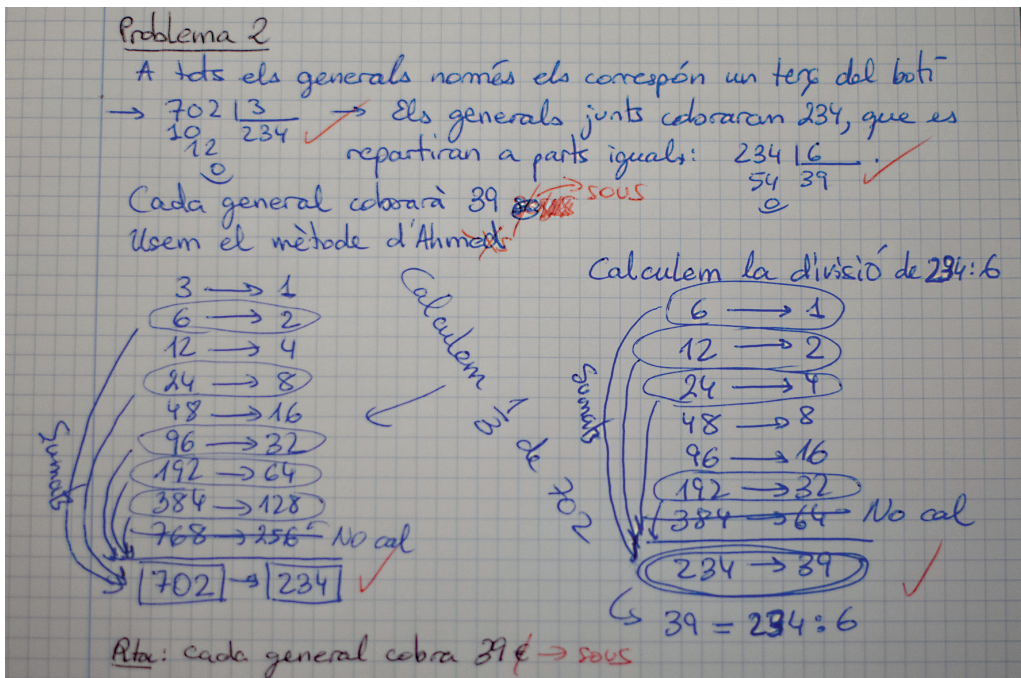 Problema 2
A tots els generals només els correspón un terç del botí
→ 702 | 3 → Els generals junts cobraran 234, que es
10 234
12
0
repartiran a parts iguals: 234 | 6
54 39
0
Cada general cobrarà 39 → sous
Usem el mètode d'Ahmed
3 → 1
6 → 2
12 → 4
24 → 8
48 → 16
96 → 32
192 → 64
384 → 128
768 → 256 No cal
702 → 234
Sumats
Calculem 1/3 de 702
Calculem la divisió de 234:6
6 → 1
12 → 2
24 → 4
48 → 8
96 → 16
192 → 32
384 → 64 No cal
234 → 39
Sumats
39 = 234 : 6
Rta: cada general cobra 39 € → sous